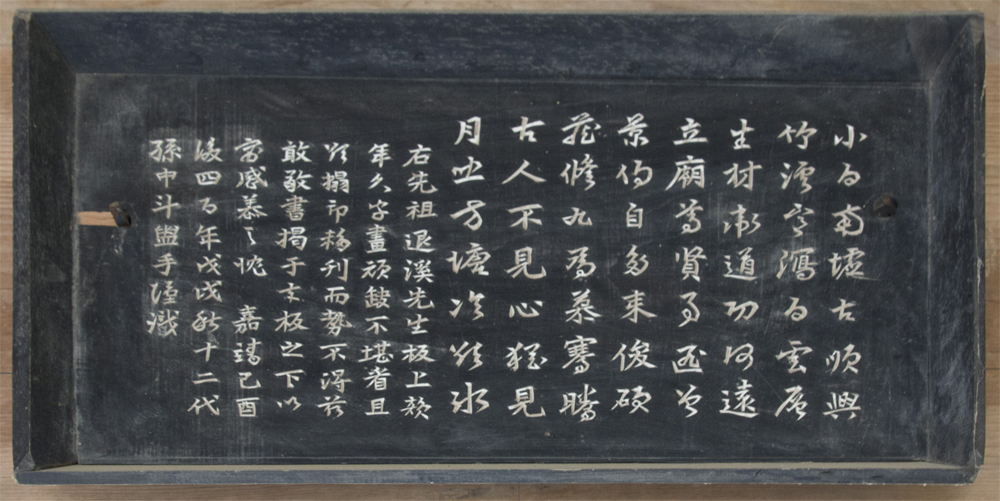 小白南墟古順興
竹溪寒瀉白雲層
生材衛道功何遠
立廟尊賢事匪曾
景仰自多來俊碩
藏修非爲慕騫騰
古人不見心猶見
月照方塘冷欲冰
右先祖退溪先生板上韻
年久字畫頑缺不堪看且
欲搨印移刊而勢不得玆
敢敬書揭于元板之下以
寓感慕之忱 嘉靖己酉
後四百年戊戌秋十二代
孫中斗盥手謹識